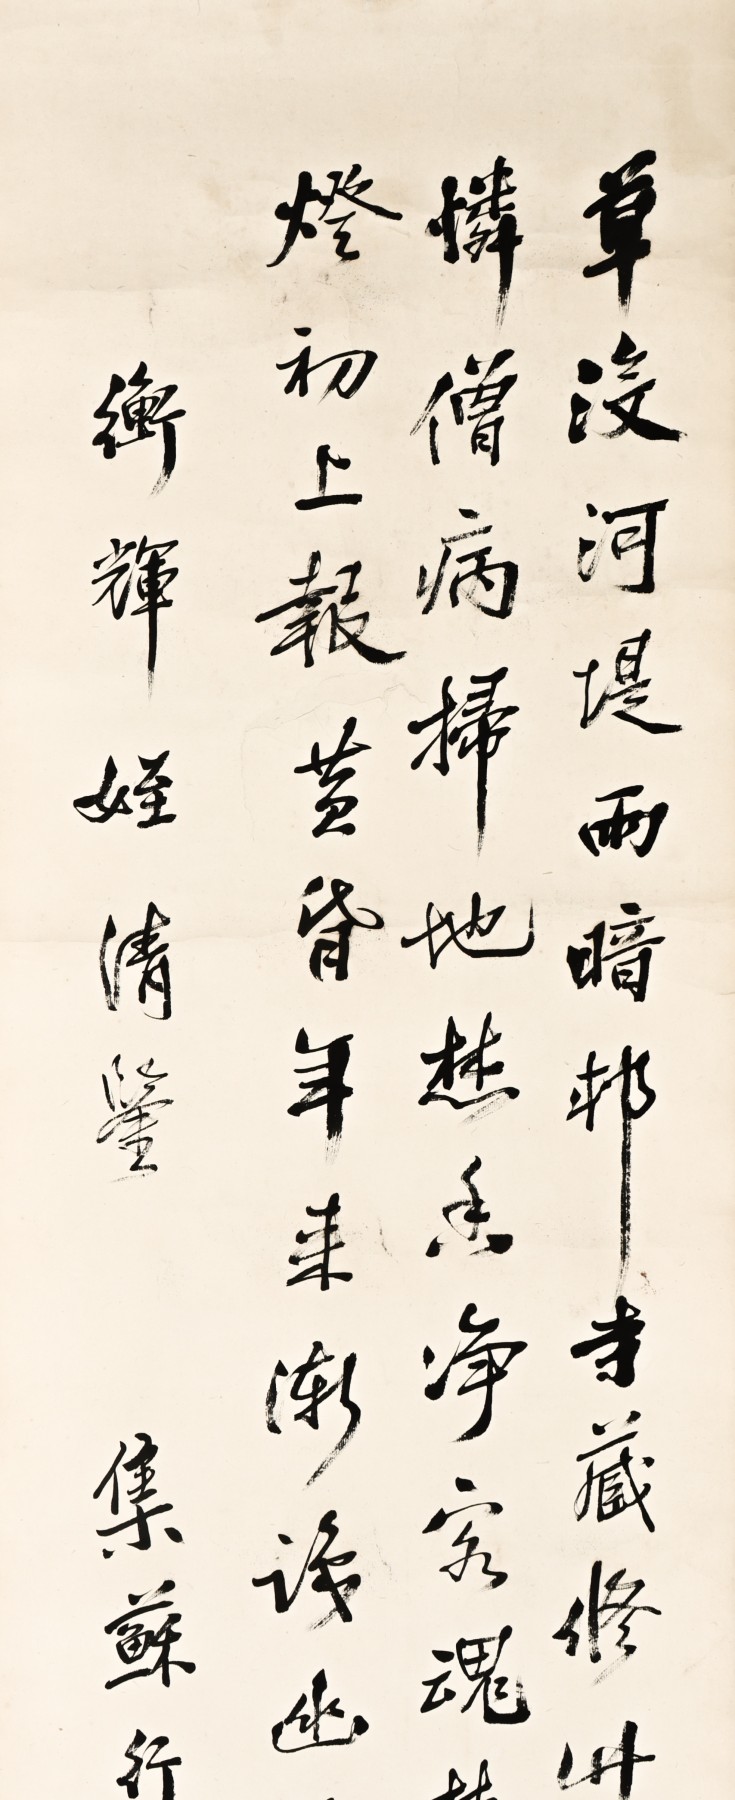 草沒河堤雨暗邨寺藏修竹
憐僧病掃地焚香淨客魂
燈初上報黃昏年來漸識幽
衡輝姪清鑒 集蘇行